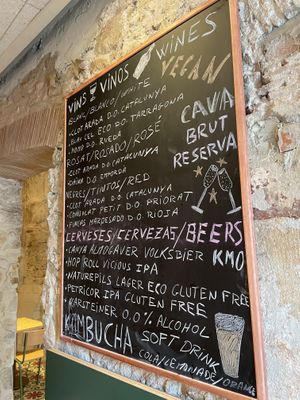 VINS VINOS WINES
VEGAN
BLANC/BLANCO/WHITE
•CLOT ARADA D.O. CATALUNYA
•BLAU CEL ECO D.O. TARRAGONA
•MOMO D.O. RUEDA
ROSAT/ROSADO/ROSÉ
•CLOT ARADA D.O. CATALUNYA
D.O. EMPORDÀ
NEGRES/TINTOS/RED
•CLOT ARADA D.O. CATALUNYA
PETIT D.O. PRIORAT
•FINCAS D.O. RIOJA
CAVA
BRUT
RESERVA
CERVESES/CERVEZAS/BEERS
•CANYA ALMOGAVER VOLKSBIER KM0
•HOP ROLL VICIOUS IPA
•NATUREPILS LAGER ECO GLUTEN FREE
•PETRICOR IPA GLUTEN FREE
0,0% ALCOHOL
KOMBUCHA SOFT DRINK
COLA/LEMONADE/ORANGE